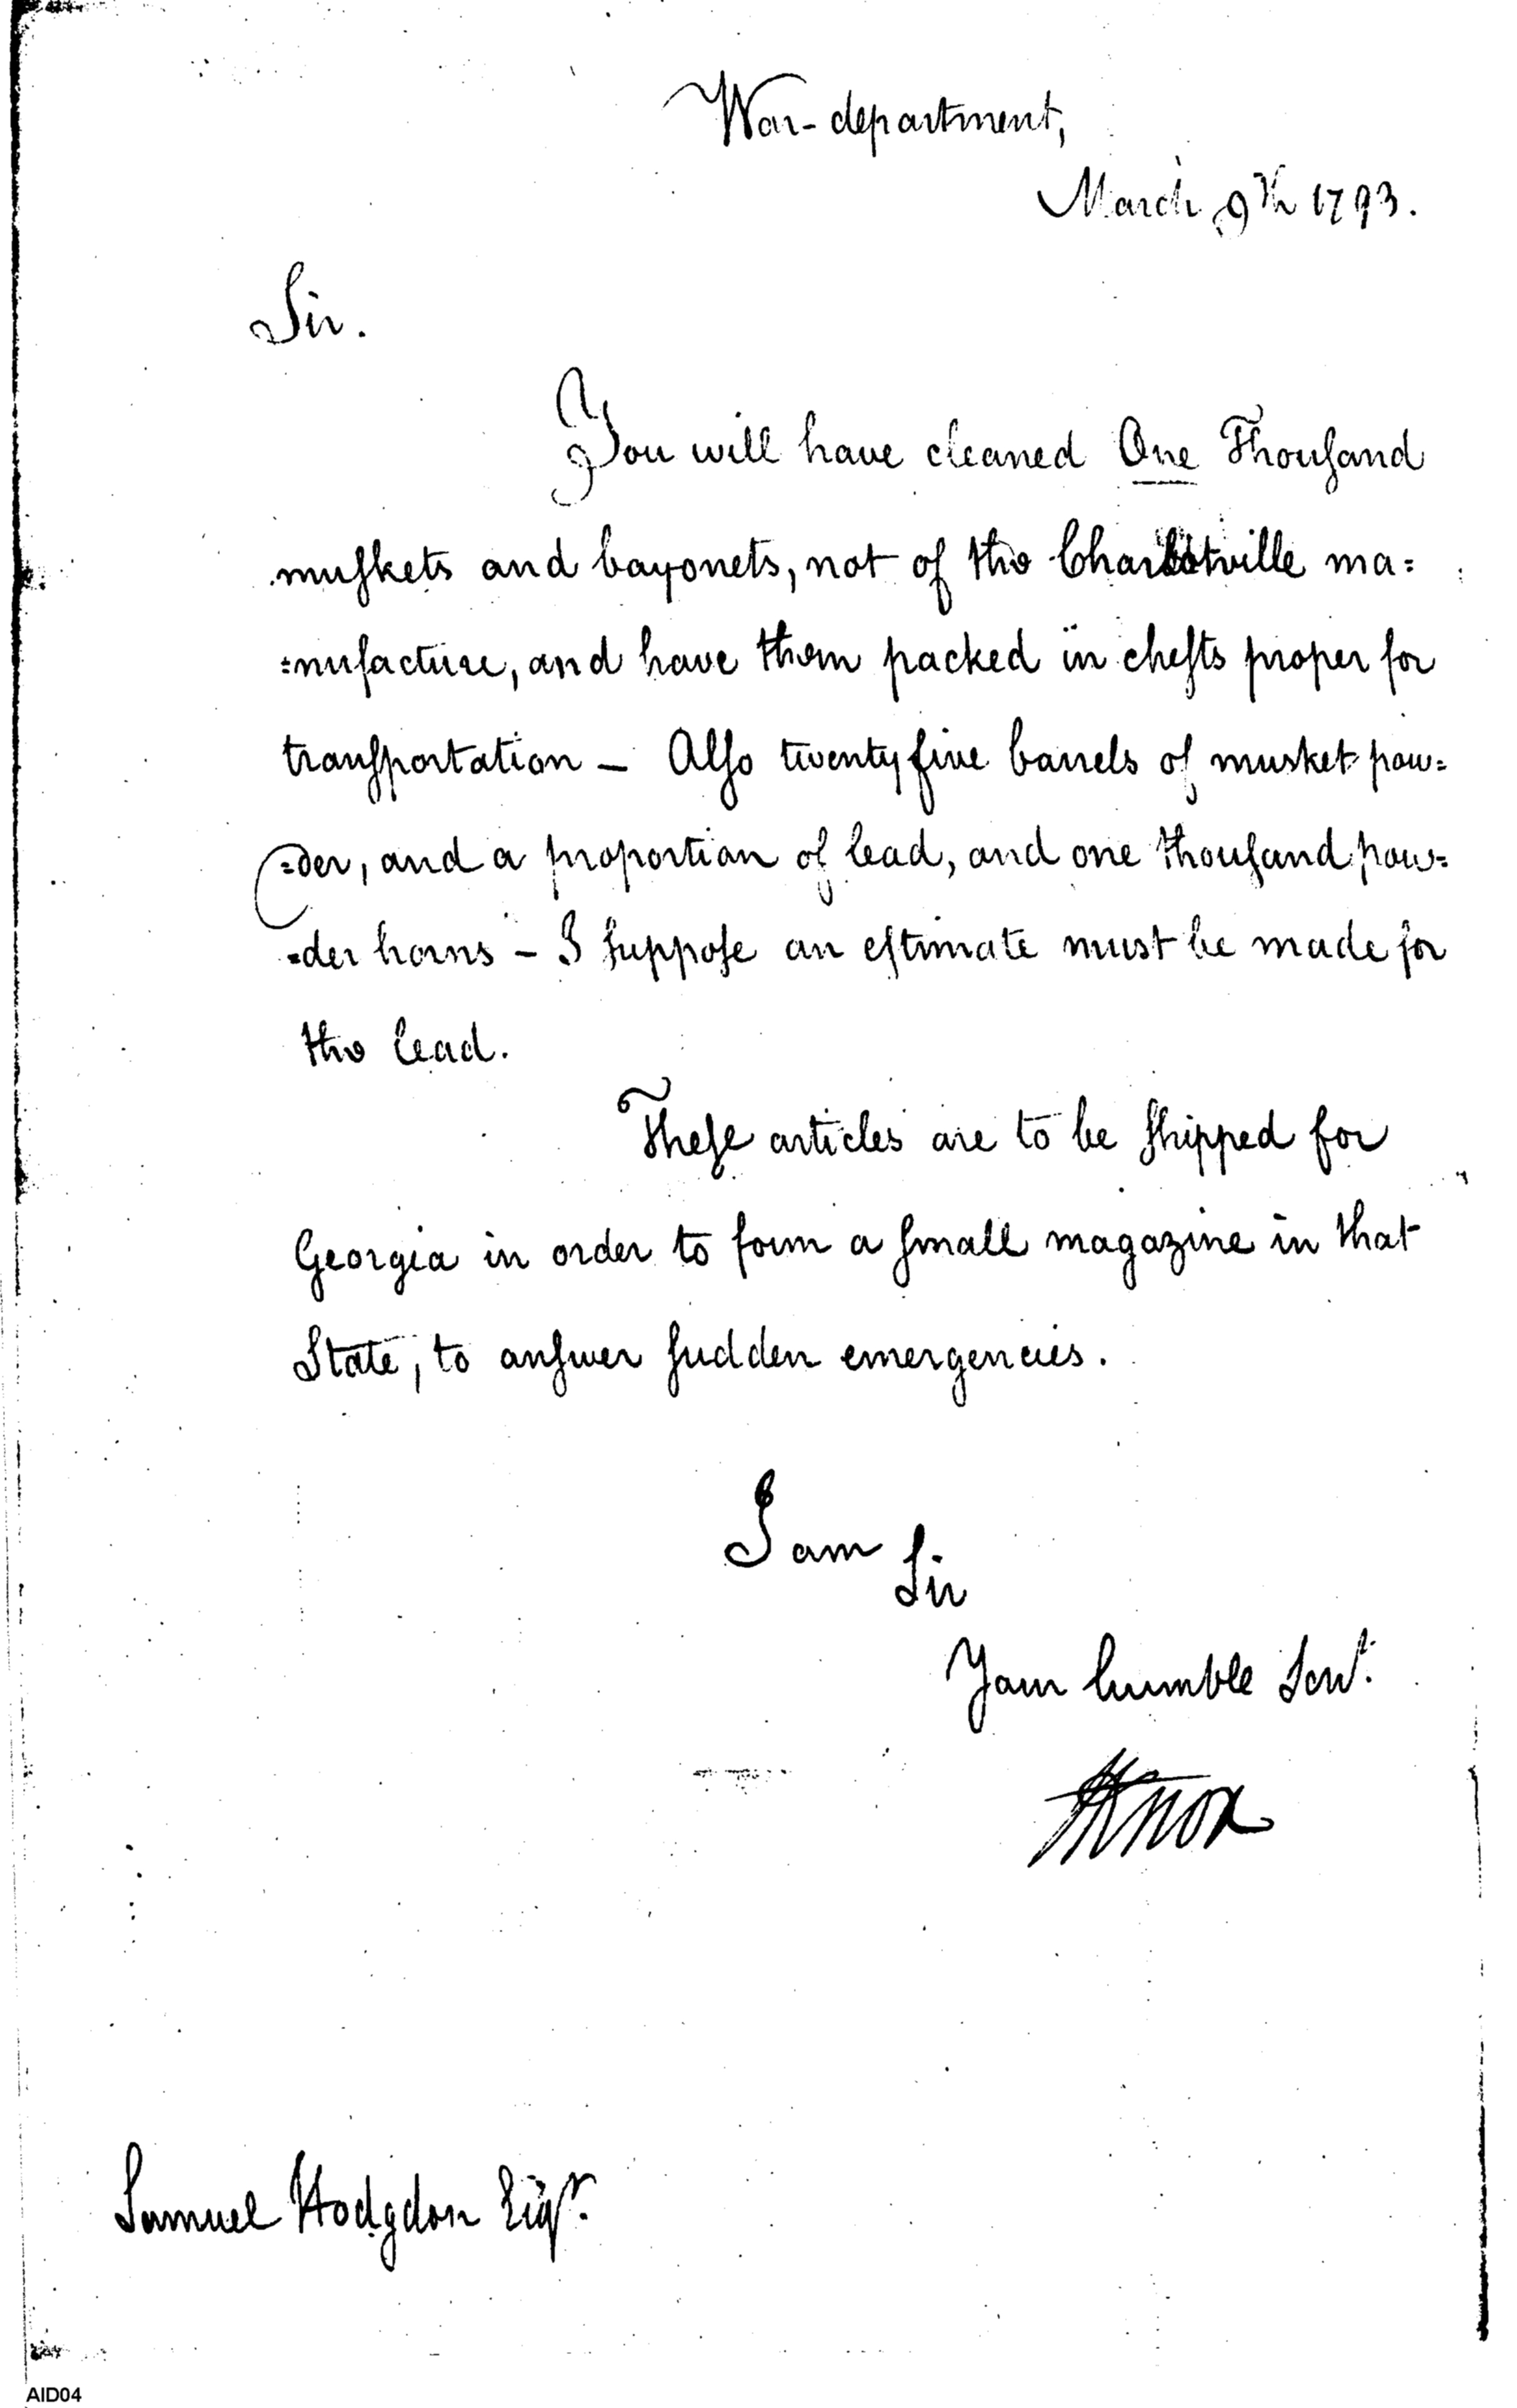 War-department,
March 9th 1793.
Sir.
You will have cleaned One Thouſand
muſkets and bayonets, not of the ma=
=nufacture, and have them packed in cheſts proper for
tranſportation – Alſo twenty five barrels of musket pow=
=der, and a proportion of lead, and one thouſand pow=
=der horns – I ſuppoſe an eſtimate must be made for
the lead.
Theſe articles are to be ſhipped for
Georgia in order to form a ſmall magazine in that
State, to anſwer ſudden emergencies.
I am
Sir
Your humble Servt.
HKnox
Samuel Hodgdon Esqr.
AID04